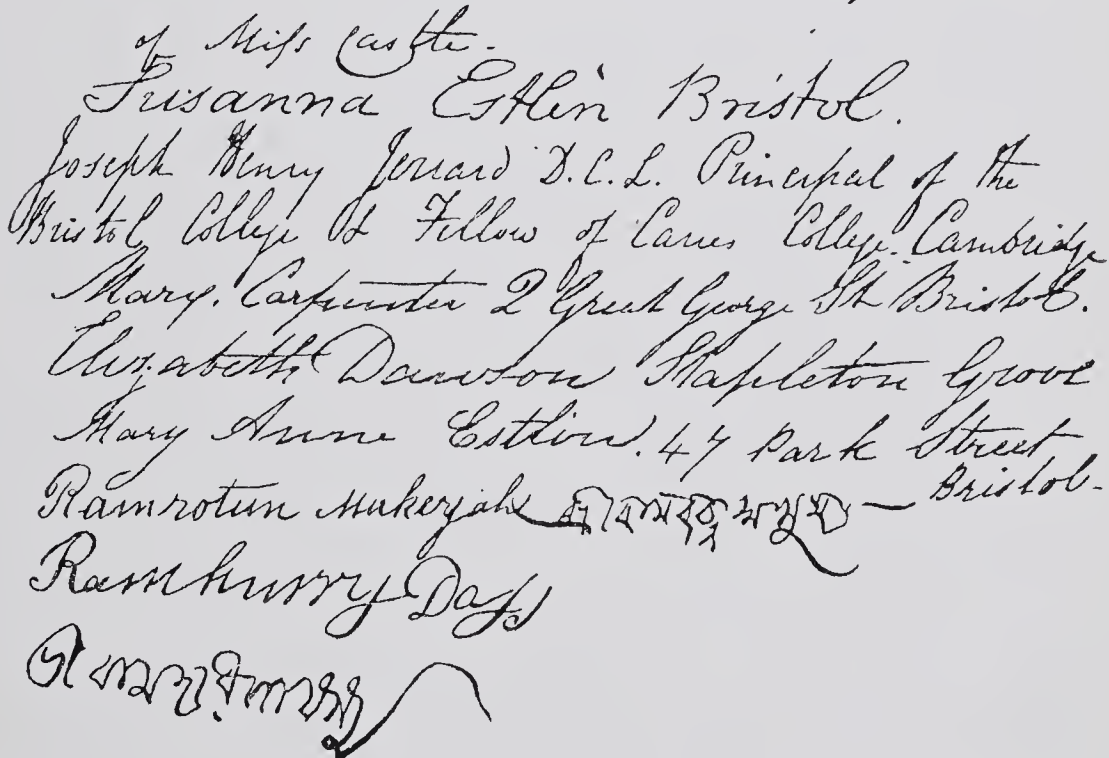 of Miss Castle.
Susanna Estlin Bristol.
Joseph Henry Jerrard D.C.L. Principal of the
Bristol College & Fellow of Caius College. Cambridge
Mary. Carpenter 2 Great George St Bristol.
Elizabeth Dawson Stapleton Grove
Mary Anne Estlin. 47 Park Street
Bristol.
Ramrotun Mukerjah
Ramhurry Dass